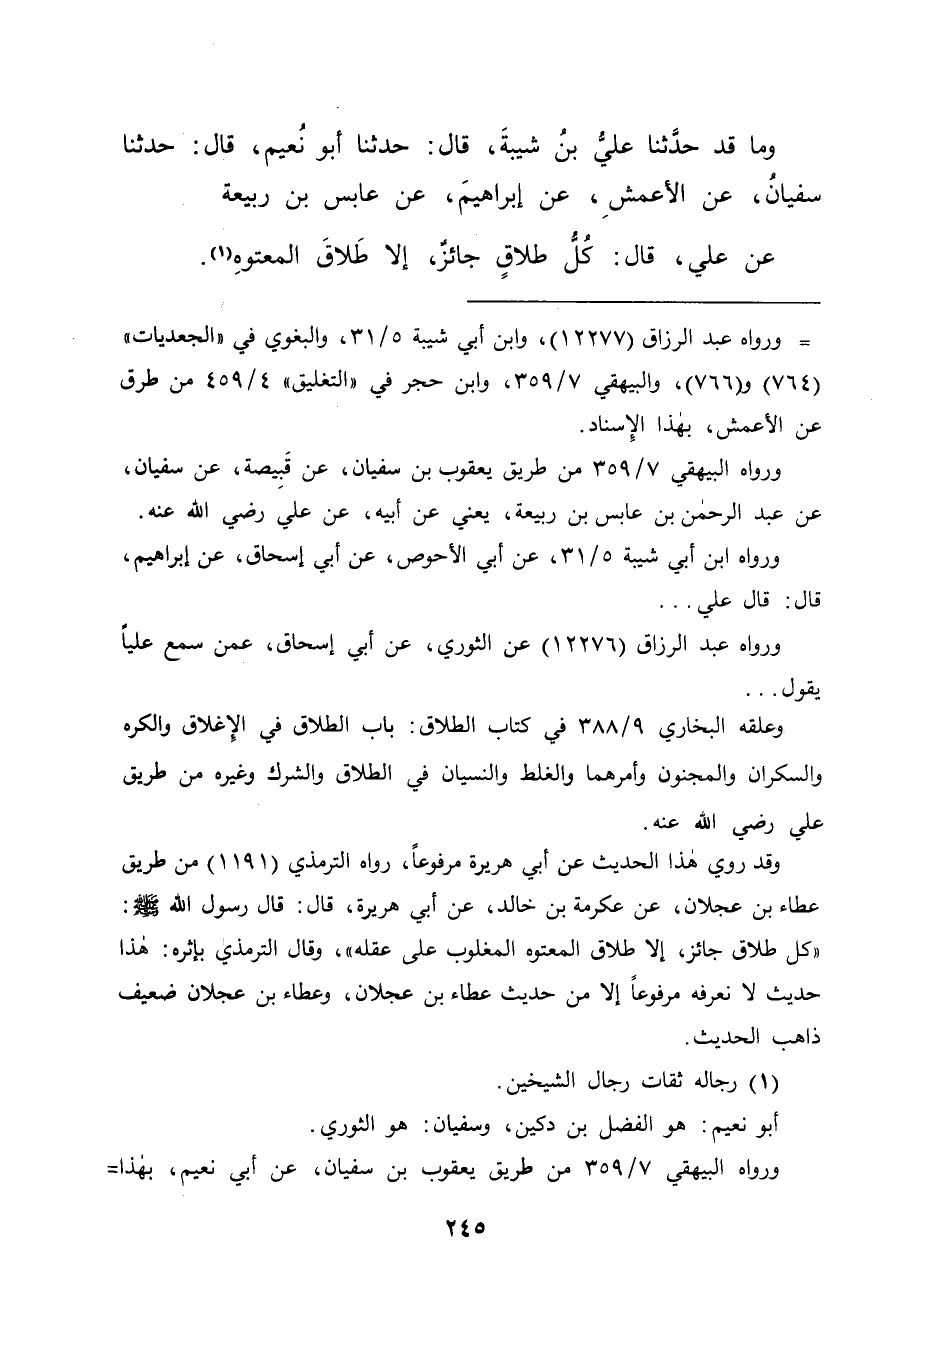 وما قد حدَّثنا عليُّ بنُ شيبةَ، قال: حدثنا أبو نُعيم، قال: حدثنا
سفيانُ، عن الأعمشِ، عن إبراهيمَ، عن عابس بن ربيعة
عن علي، قال: كُلُّ طلاقٍ جائزٌ، إلا طَلاقَ المعتوهِ(١).
= ورواه عبد الرزاق (١٢٢٧٧)، وابن أبي شيبة ٣١/٥، والبغوي في «الجعديات»
(٧٦٤) و(٧٦٦)، والبيهقي ٣٥٩/٧، وابن حجر في «التغليق» ٤٥٩/٤ من طرق
عن الأعمش، بهٰذا الإسناد.
ورواه البيهقي ٣٥٩/٧ من طريق يعقوب بن سفيان، عن قَبِيصة، عن سفيان،
عن عبد الرحمٰن بن عابس بن ربيعة، يعني عن أبيه، عن علي رضي الله عنه.
ورواه ابن أبي شيبة ٣١/٥، عن أبي الأحوص، عن أبي إسحاق، عن إبراهيم،
قال: قال علي...
ورواه عبد الرزاق (١٢٢٧٦) عن الثوري، عن أبي إسحاق، عمن سمع علياً
يقول...
وعلقه البخاري ٣٨٨/٩ في كتاب الطلاق: باب الطلاق في الإغلاق والكره
والسكران والمجنون وأمرهما والغلط والنسيان في الطلاق والشرك وغيره من طريق
علي رضي الله عنه.
وقد روي هٰذا الحديث عن أبي هريرة مرفوعاً، رواه الترمذي (١١٩١) من طريق
عطاء بن عجلان، عن عكرمة بن خالد، عن أبي هريرة، قال: قال رسول الله ﷺ:
«كل طلاق جائز، إلا طلاق المعتوه المغلوب على عقله»، وقال الترمذي بإثره: هٰذا
حديث لا نعرفه مرفوعاً إلا من حديث عطاء بن عجلان، وعطاء بن عجلان ضعيف
ذاهب الحديث.
(١) رجاله ثقات رجال الشيخين.
أبو نعيم: هو الفضل بن دكين، وسفيان: هو الثوري.
ورواه البيهقي ٣٥٩/٧ من طريق يعقوب بن سفيان، عن أبي نعيم، بهٰذا=
٢٤٥